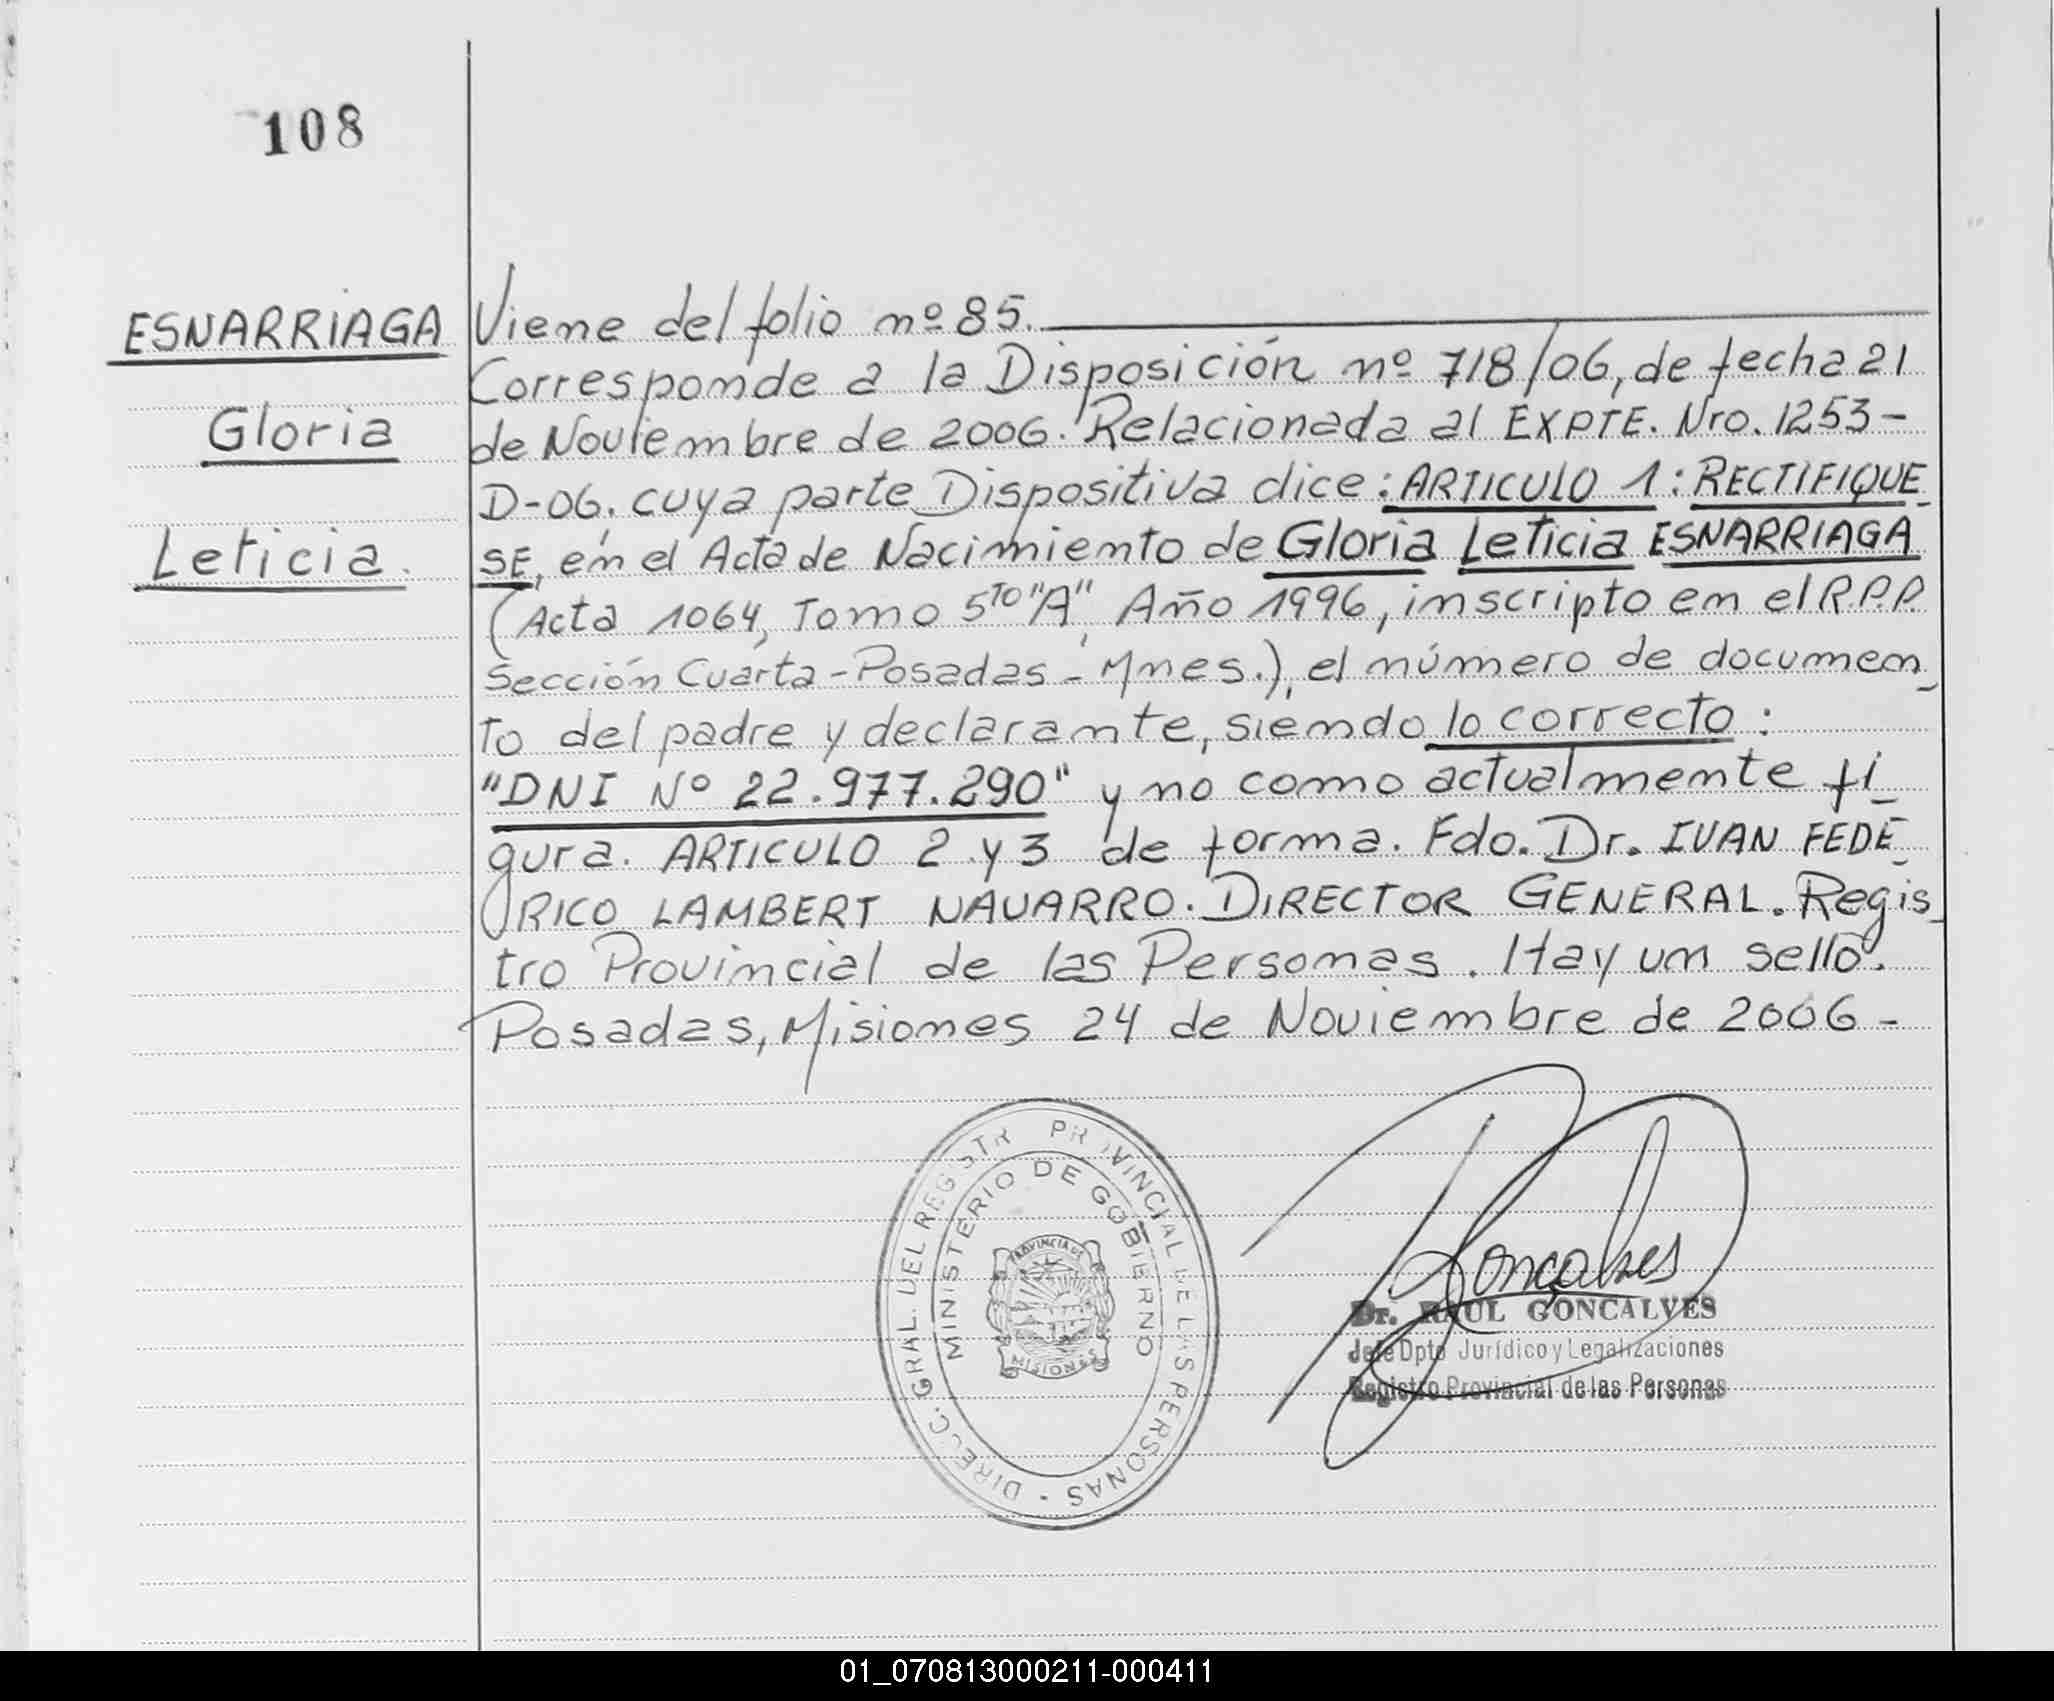 108
ESNARRIAGA
Gloria
Leticia.
Viene del folio nº 85.
Corresponde a la Disposición nº 718/06, de fecha 21
de Noviembre de 2006. Relacionada al EXPTE. Nro. 1253-
D-06. cuya parte Dispositiva dice: ARTICULO 1: RECTIFIQUE_
SE, en el Acta de Nacimiento de Gloria Leticia ESNARRIAGA
(Acta 1064, Tomo 5TO "A", Año 1996, inscripto en el R.P.P.
Sección Cuarta - Posadas - Mnes.), el número de documen_
to del padre y declarante, siendo lo correcto:
"DNI Nº 22.977.290" y no como actualmente fi_
gura. ARTICULO 2 y 3 de forma. Fdo. Dr. IVAN FEDE_
RICO LAMBERT NAVARRO. DIRECTOR GENERAL. Regis_
tro Provincial de las Personas. Hay un sello.
Posadas, Misiones 24 de Noviembre de 2006 -
DIRECC. GRAL. DEL REGISTR PROVINCIAL DE LAS PERSONAS -
MINISTERIO DE GOBIERNO
PROVINCIA DE
MISIONES
Goncalves
Dr. RAUL GONCALVES
Jefe Dpto Jurídico y Legalizaciones
Registro Provincial de las Personas
01_070813000211-000411